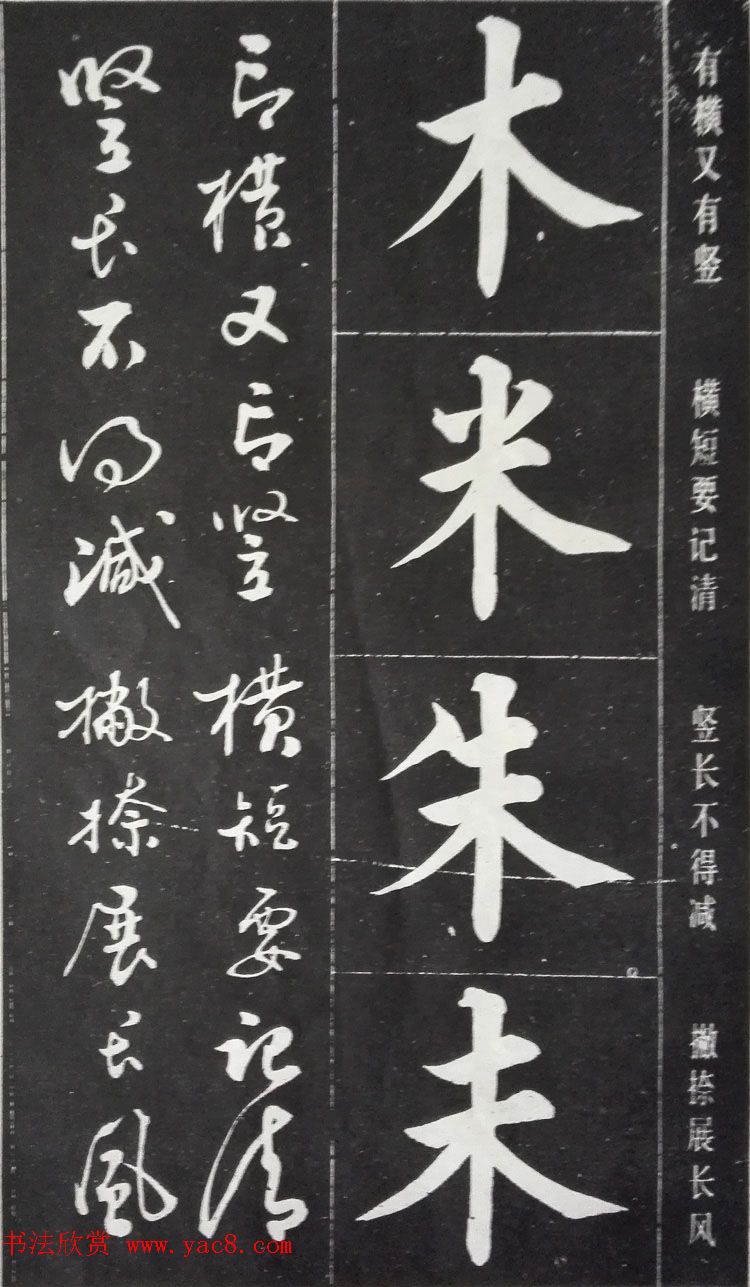 有横又有竖 横短要记清 竖长不得减 撇捺展长风
木
米
朱
未
有横又有竖横短要记清
竖长不得减撇捺展长风
书法欣赏 www.yac8.com